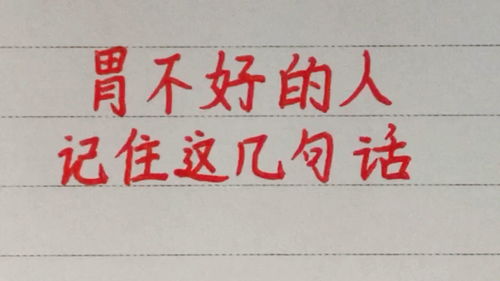 胃不好的人
记住这几句话